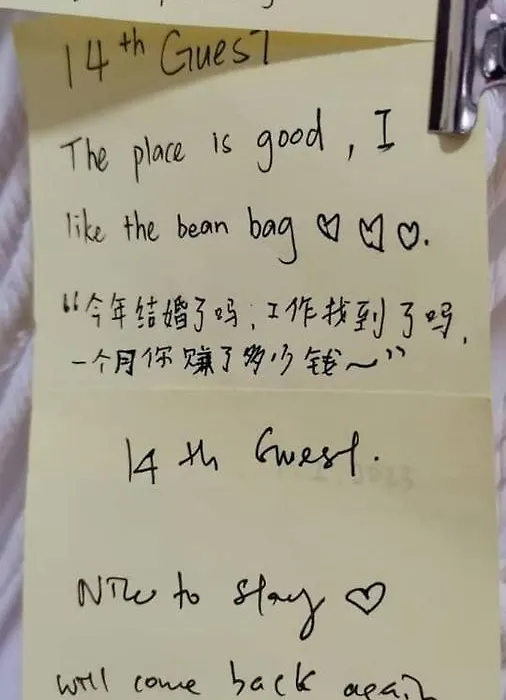 14th Guest
The place is good, I
like the bean bag ♡ ♡ ♡.
“今年结婚了吗；工作找到了吗，
一个月你赚了多少钱～”
14th Guest.
Nice to stay ♡
will come back again